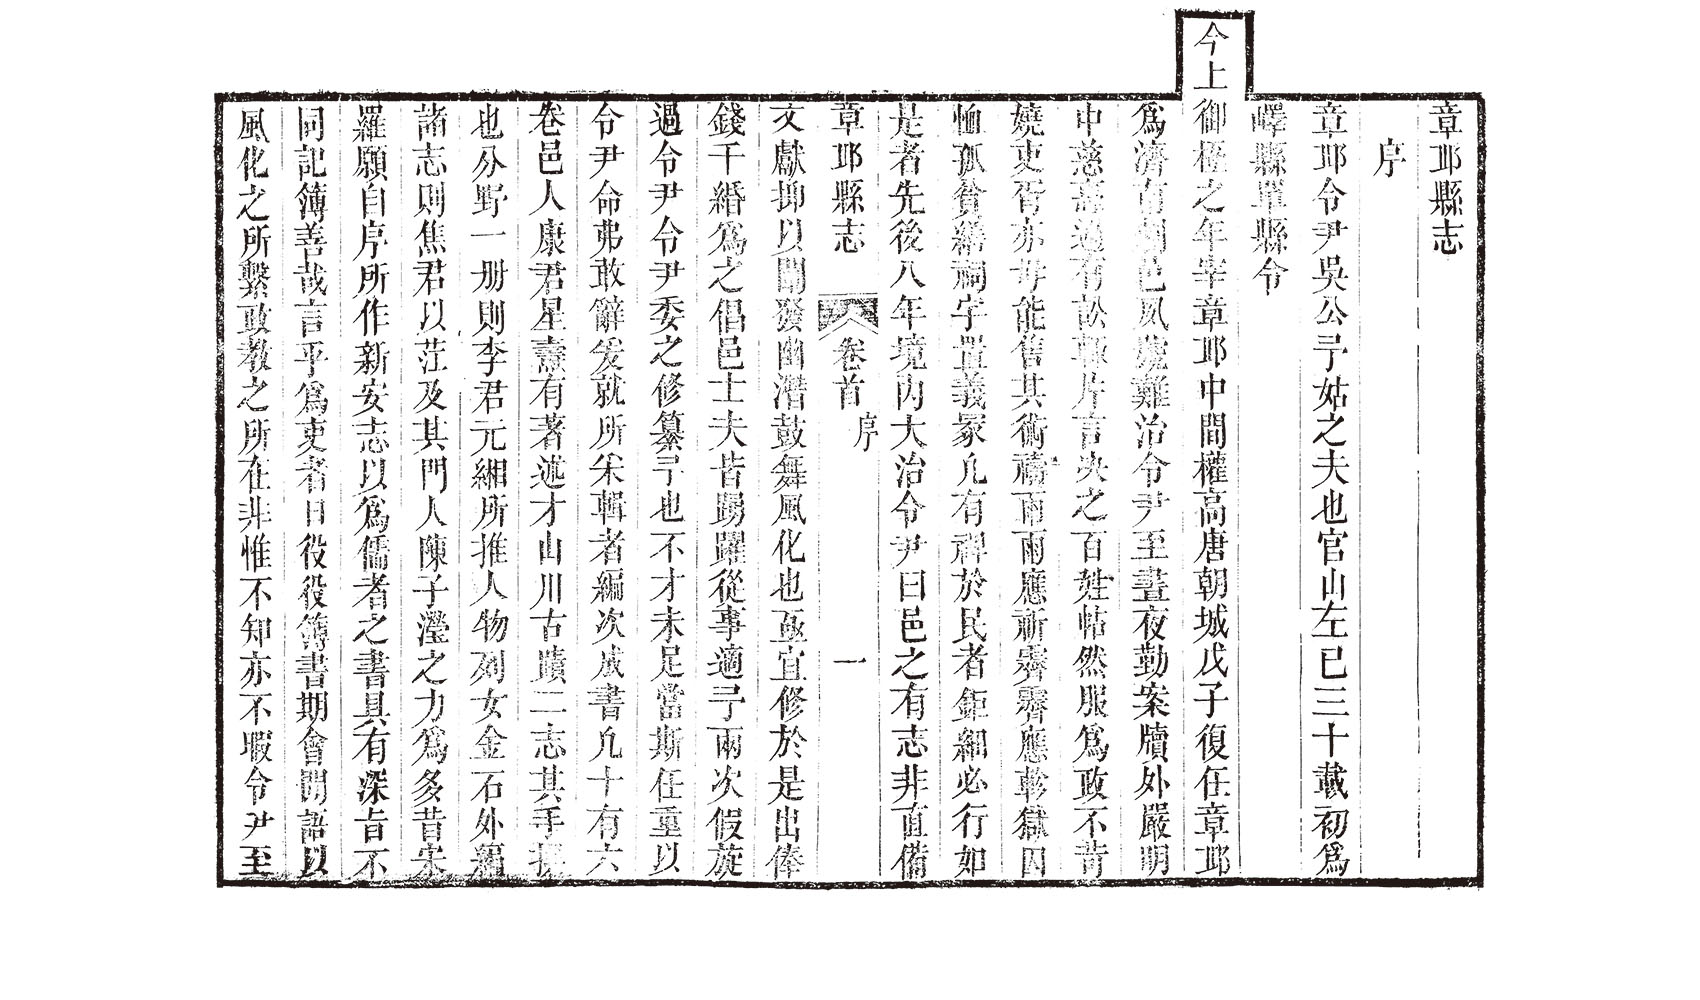 章邱縣志
序
章邱令尹吳公予姑之夫也官山左已三十載初爲
嶧縣單縣令
今上御極之年宰章邱中間權高唐朝城戊子復任章邱
爲濟南劇邑夙號難治令尹至晝夜勤案牘外嚴明
中慈藹遇有訟輒片言決之百姓帖然服爲政不苛
嬈吏胥亦毋能售其術禱雨雨應祈霽霽應軫獄囚
恤孤貧繕祠宇置義冢凡有裨於民者鉅細必行如
是者先後八年境內大治令尹曰邑之有志非直備
章邱縣志 卷首 序 一
文獻抑以闡發幽潛鼓舞風化也亟宜修於是出俸
錢千緡爲之倡邑士夫皆踴躍從事適予兩次假旋
過令尹令尹委之修纂予也不才未足當斯任重以
令尹命弗敢辭爰就所采輯者編次成書凡十有六
卷邑人康君星壽有著述才山川古蹟二志其手授
也分野一册則李君元緗所推人物列女金石外編
諸志則焦君以茳及其門人陳子瀅之力爲多昔宋
羅願自序所作新安志以爲儒者之書具有深旨不
同記簿善哉言乎爲吏者日役役簿書期會間語以
風化之所繫政教之所在非惟不知亦不暇令尹至